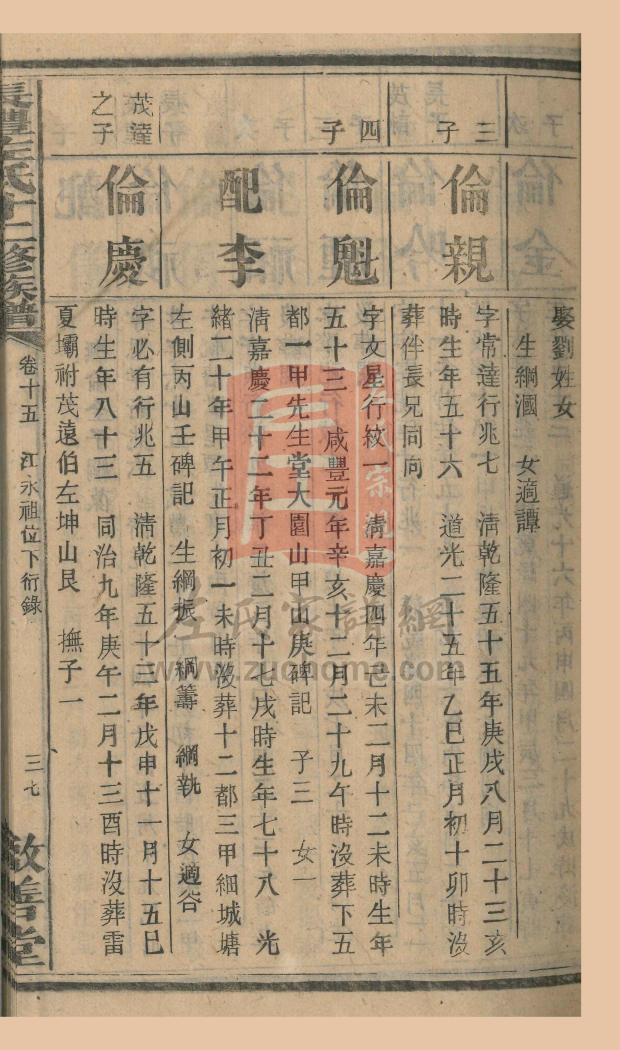 娶劉姓女
生綱漍 女適譚
三子
倫親
字常達行兆七 淸乾隆五十五年庚戌八月二十三亥
時生年五十六 道光二十五年乙巳正月初十卯時沒
葬伴長兄同向
四子
倫魁
字文星行紋一 淸嘉慶四年己未二月十二未時生年
五十三 咸豐元年辛亥十二月二十九午時沒葬下五
都一甲先生堂大園山甲山庚碑記 子三 女一
配李
淸嘉慶二十二年丁丑二月十七戌時生年七十八 光
緒二十年甲午正月初一未時沒葬十二都三甲細城塘
左側丙山壬碑記 生綱振 綱籌 綱執 女適谷
茂達
之子
倫慶
字必有行兆五 淸乾隆五十三年戊申十一月十五巳
時生年八十三 同治九年庚午二月十三酉時沒葬雷
夏壩祔茂遠伯左坤山艮 撫子一
長豐左氏十二修族譜
卷十五
江永祖位下衍錄
三七
敦善堂
左氏家譜網
www.zuohome.com
宗親